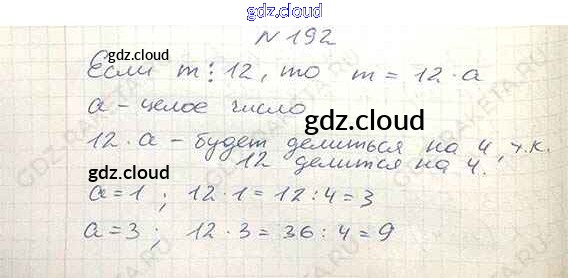 gdz.cloud
№ 192
gdz.cloud
Если m ⋮ 12, то m = 12 · a
a - целое число
gdz.cloud
12 · a - будет делиться на 4, т.к.
12 делится на 4.
gdz.cloud
a = 1 ; 12 · 1 = 12 : 4 = 3
a = 3 ; 12 · 3 = 36 : 4 = 9
gdz.cloud